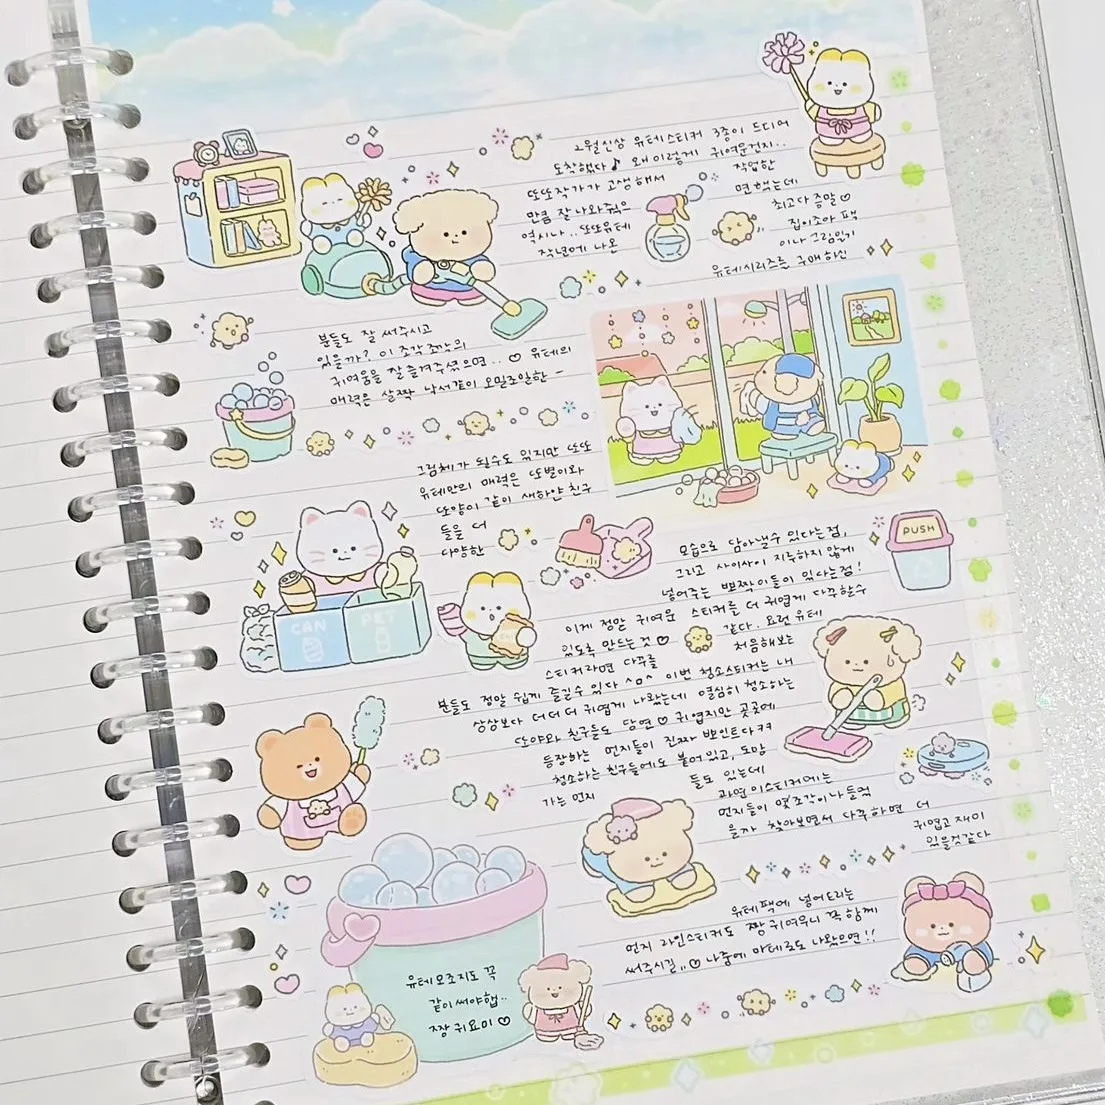 2월신상 유테스티커 3종이 드디어
도착했다♪ 왜이렇게 귀여운건지..
또또작가가 고생해서 작업한
만큼 잘나와줬음 면했는데
역시나.. 또또유테 최고다 증말♡
작년에 나온 집이조아 팩
이나 그림일기
유테시리즈를 구매하신
분들도 잘 써주시고
있을까? 이 조각조각의
귀여움을 잘즐겨주셨으면.. ♡ 유테의
매력은 살짝 낙서같이 오밀조밀한 -
그림체가 될수도 있지만 또또
유테만의 매력은 또별이와
또양이 같이 새하얀 친구
들을 더
다양한
모습으로 담아낼수 있다는점,
그리고 사이사이 지루하지 않게
넣어주는 뽀짝이들이 있다는점!
이게 정말 귀여운 스티커를 더 귀엽게 다꾸할수
있도록 만드는것♡ 같다. 요런 유테
스티커라면 다꾸를 처음해보는
분들도 정말 쉽게 즐길수 있다 ^o^ 이번 청소스티커는 내
상상보다 더더더 귀엽게 나왔는데 열심히 청소하는
또야와 친구들도 당연♡ 귀엽지만 곳곳에
등장하는 먼지들이 진짜 뽀인트다ㅋㅋ
청소하는 친구들에도 붙어있고, 도망
가는 먼지 들도 있는데
과연 이스티커에는
먼지들이 몇조각이나 들었
을까 찾아보면서 다꾸하면 더
귀엽고 재미
있을것같다
유테팩에 넣어드리는
먼지 라인스티커도 짱귀여우니 꼭 함께
써주시길,,♡ 나중에 마테로도 나왔으면!!
유테모조지도 꼭
같이써야햅..
짱 귀요미♡
CAN
PET
PUSH